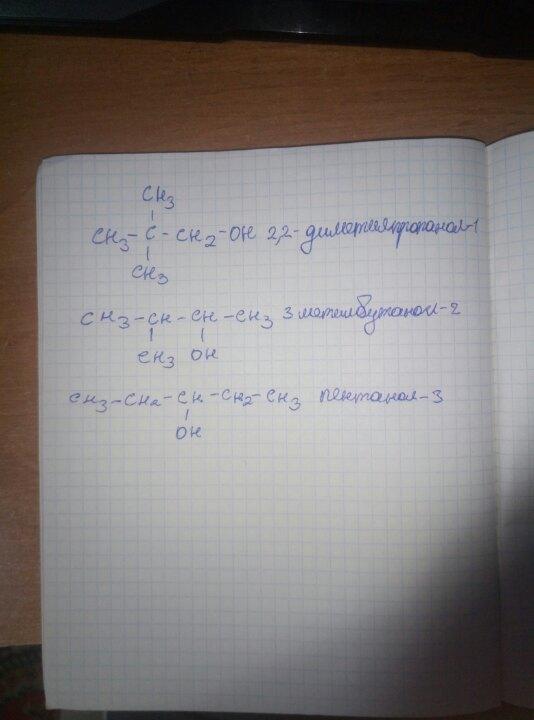 CH3
CH3 - C - CH2 - OH 2,2-диметилпропанол-1
CH3
CH3 - CH - CH - CH3 3 метилбутанол-2
CH3 OH
CH3 - CH2 - CH - CH2 - CH3 пентанол-3
OH